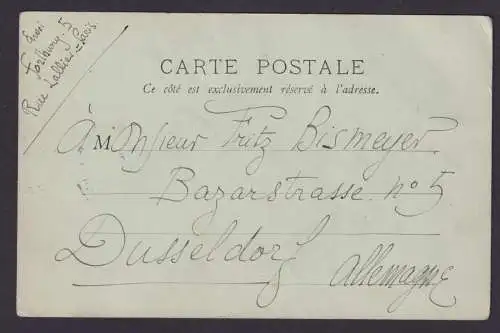 CARTE POSTALE
Ce côté est exclusivement réservé à l'adresse.
À Monsieur Fritz Bismeyer.
Bazarstrasse nº 5
Dusseldorf
Allemagne
5
Rue Lallier = Paris.